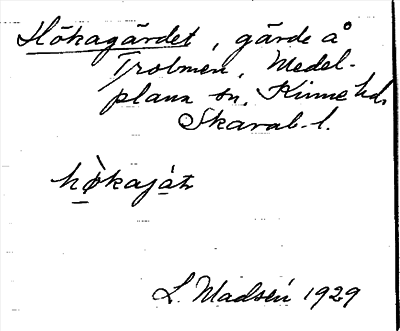 Hökagärdet, gärde å
Trolmen, Medel-
plana sn, Kinne hd,
Skarab. l.
hø̀kajaṯ
L. Madsén 1929